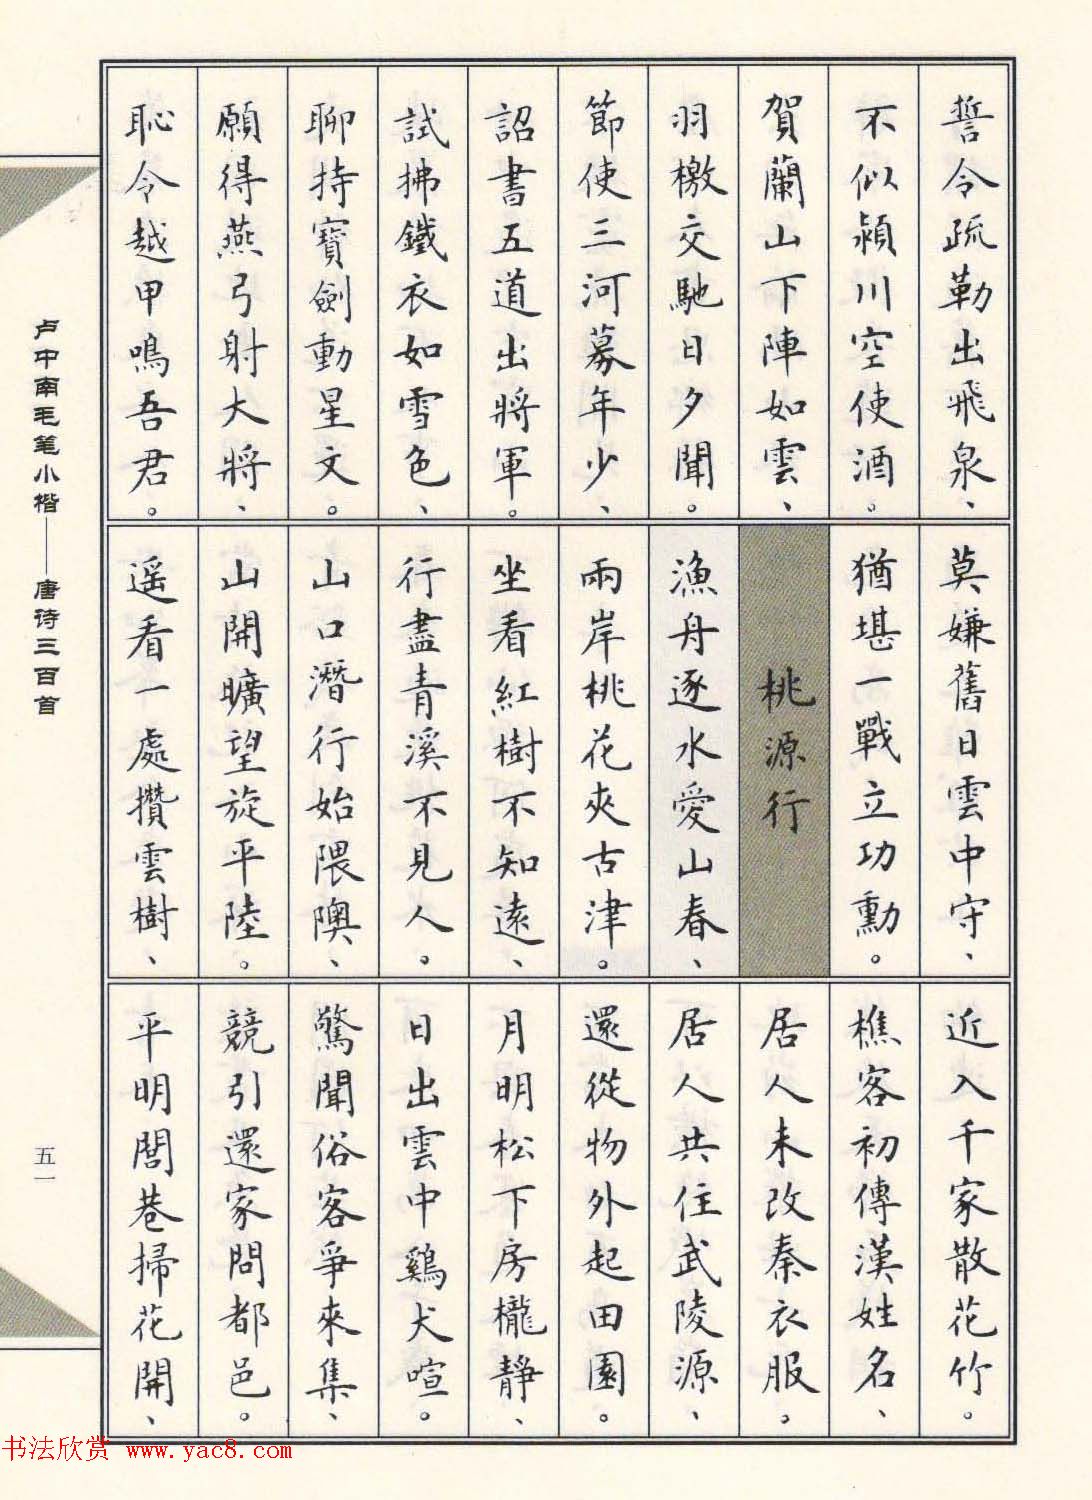 誓令疏勒出飛泉、
不似潁川空使酒。
賀蘭山下陣如雲、
羽檄交馳日夕聞。
節使三河募年少、
詔書五道出將軍。
試拂鐵衣如雪色、
聊持寶劍動星文。
願得燕弓射大將、
恥令越甲鳴吾君。
莫嫌舊日雲中守、
猶堪一戰立功勳。
桃源行
漁舟逐水愛山春、
兩岸桃花夾古津。
坐看紅樹不知遠、
行盡青溪不見人。
山口潛行始隈隩、
山開曠望旋平陸。
遥看一處攢雲樹、
近入千家散花竹。
樵客初傳漢姓名、
居人未改秦衣服。
居人共住武陵源、
還從物外起田園。
月明松下房櫳靜、
日出雲中鷄犬喧。
驚聞俗客爭來集、
競引還家問都邑。
平明閭巷掃花開、
卢中南毛笔小楷——唐诗三百首
五一
书法欣赏 www.yac8.com